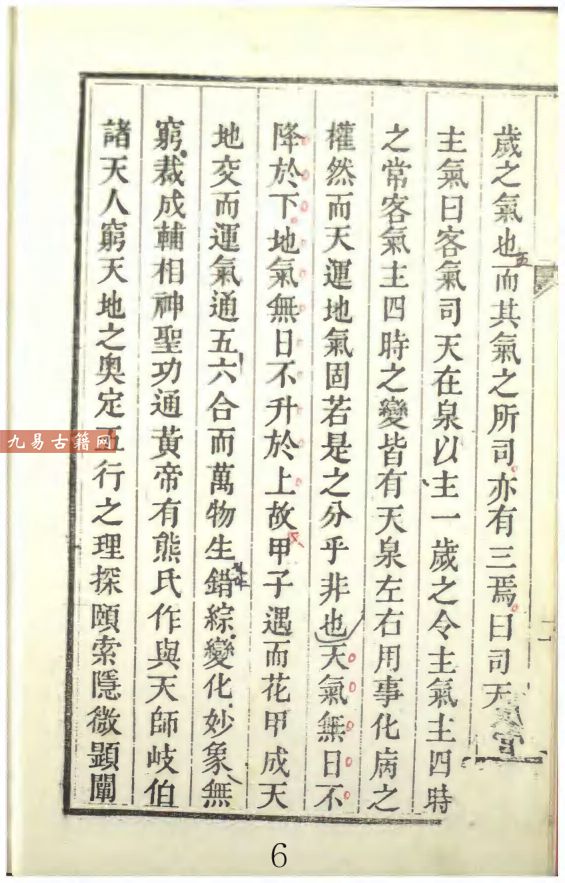 歲之氣也而其氣之所司亦有三焉曰司天
主氣曰客氣司天在泉以主一歲之令主氣主四時
之常客氣主四時之變皆有天泉左右用事化病之
權然而天運地氣固若是之分乎非也天氣無日不
降於下地氣無日不升於上故甲子遇而花甲成天
地交而運氣通五六合而萬物生錯綜變化妙象無
窮裁成輔相神聖功通黃帝有熊氏作與天師岐伯
諸天人窮天地之奧定五行之理探頤索隱微顕闡
九易古籍网
6